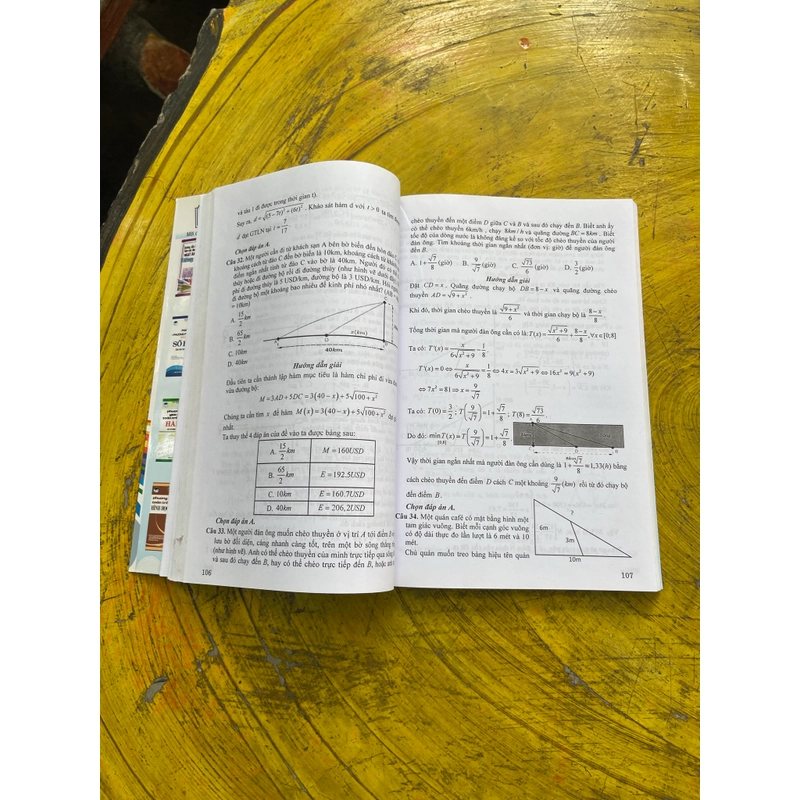 và tàu 1 đi được trong thời gian t).
Suy ra, d = √((5 − 7t)² + (6t)²). Khảo sát hàm d với t > 0 ta tìm được
d đạt GTLN tại t = 7/17
Chọn đáp án A.
Câu 32. Một người cần đi từ khách sạn A bên bờ biển đến hòn đảo C.
khoảng cách từ đảo C đến bờ biển là 10km, khoảng cách từ
điểm ngắn nhất tính từ đảo C vào bờ là 40km. Người đó có thể
thủy hoặc đi đường bộ rồi đi đường thủy (như hình vẽ dưới
phí đi đường thủy là 5 USD/km, đường bộ là 3 USD/km. Hỏi
đi đường bộ một khoảng bao nhiêu để kinh phí nhỏ nhất?
= 10km)
A. 15/2 km
B. 65/2 km
C. 10km
D. 40km
C
A
D
x(km)
40km
Hướng dẫn giải
Đầu tiên ta cần thành lập hàm mục tiêu là hàm chi phí đi vừa
vừa đường bộ:
M = 3AD + 5DC = 3(40 − x) + 5√(100 + x²)
Chúng ta cần tìm x để hàm M(x) = 3(40 − x) + 5√(100 + x²) đạt
nhất.
Ta thay thế 4 đáp án của đề vào ta được bảng sau:
A. 15/2 km M = 160USD
B. 65/2 km E = 192.5USD
C. 10km E = 160.7USD
D. 40km E = 206,2USD
Chọn đáp án A.
Câu 33. Một người đàn ông muốn chèo thuyền ở vị trí A tới điểm B
lưu bờ đối diện, càng nhanh càng tốt, trên một bờ sông thẳng
(như hình vẽ). Anh có thể chèo thuyền của mình trực tiếp qua sông
và sau đó chạy đến B, hay có thể chèo trực tiếp đến B, hoặc anh
106
chèo thuyền đến một điểm D giữa C và B và sau đó chạy đến B. Biết anh ấy
có thể chèo thuyền 6km/h, chạy 8km/h và quãng đường BC = 8km. Biết
tốc độ của dòng nước là không đáng kể so với tốc độ chèo thuyền của người
đàn ông. Tìm khoảng thời gian ngắn nhất (đơn vị: giờ) để người đàn ông
đến B.
A. 1 + √7/8 (giờ) B. 9/√7 (giờ) C. √73/6 (giờ) D. 3/2 (giờ)
Hướng dẫn giải
Đặt CD = x. Quãng đường chạy bộ DB = 8 − x và quãng đường chèo
thuyền AD = √(9 + x²).
Khi đó, thời gian chèo thuyền là √(9 + x²)/6 và thời gian chạy bộ là (8 − x)/8.
Tổng thời gian mà người đàn ông cần có là: T(x) = √(x² + 9)/6 + (8 − x)/8, ∀x ∈ [0;8]
Ta có: T'(x) = x/(6√(x² + 9)) − 1/8
T'(x) = 0 ⇔ x/(6√(x² + 9)) = 1/8 ⇔ 4x = 3√(x² + 9) ⇔ 16x² = 9(x² + 9)
⇔ 7x² = 81 ⇒ x = 9/√7
Ta có: T(0) = 3/2; T(9/√7) = 1 + √7/8; T(8) = √73/6.
Do đó: min[0;8] T(x) = T(9/√7) = 1 + √7/8
Vậy thời gian ngắn nhất mà người đàn ông cần dùng là 1 + √7/8 ≈ 1,33(h) bằng
cách chèo thuyền đến điểm D cách C một khoảng 9/√7 (km) rồi từ đó chạy bộ
đến điểm B.
Chọn đáp án A.
Câu 34. Một quán café có mặt bằng hình một
tam giác vuông. Biết mỗi cạnh góc vuông
có độ dài thực đo lần lượt là 6 mét và 10
mét.
Chủ quán muốn treo bảng hiệu tên quán
?
6m
3m
10m
107